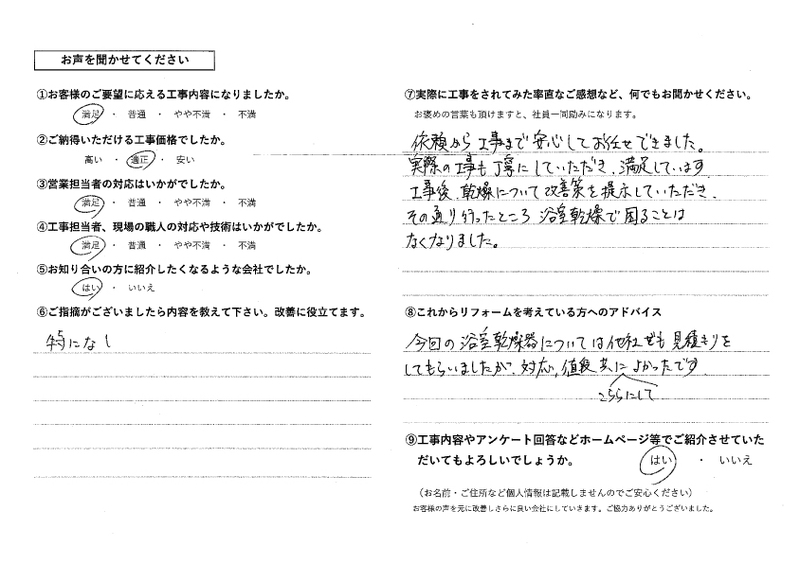 お声を聞かせてください
①お客様のご要望に応える工事内容になりましたか。
満足 ・ 普通 ・ やや不満 ・ 不満
②ご納得いただける工事価格でしたか。
高い ・ 適正 ・ 安い
③営業担当者の対応はいかがでしたか。
満足 ・ 普通 ・ やや不満 ・ 不満
④工事担当者、現場の職人の対応や技術はいかがでしたか。
満足 ・ 普通 ・ やや不満 ・ 不満
⑤お知り合いの方に紹介したくなるような会社でしたか。
はい ・ いいえ
⑥ご指摘がございましたら内容を教えて下さい。改善に役立てます。
特になし
⑦実際に工事をされてみた率直なご感想など、何でもお聞かせください。
お褒めの言葉も頂けますと、社員一同励みになります。
依頼から工事まで安心してお任せできました。
実際の工事も丁寧にしていただき、満足しています
工事後、乾燥について改善策を提示していただき、
その通り行ったところ 浴室乾燥で困ることは
なくなりました。
⑧これからリフォームを考えている方へのアドバイス
今回の浴室乾燥器については他社でも見積もりを
してもらいましたが、対応、値段共によかったです
こちらにして
⑨工事内容やアンケート回答などホームページ等でご紹介させていた
だいてもよろしいでしょうか。 はい ・ いいえ
（お名前・ご住所など個人情報は記載しませんのでご安心ください）
お客様の声を元に改善しさらに良い会社にしていきます。ご協力ありがとうございました。